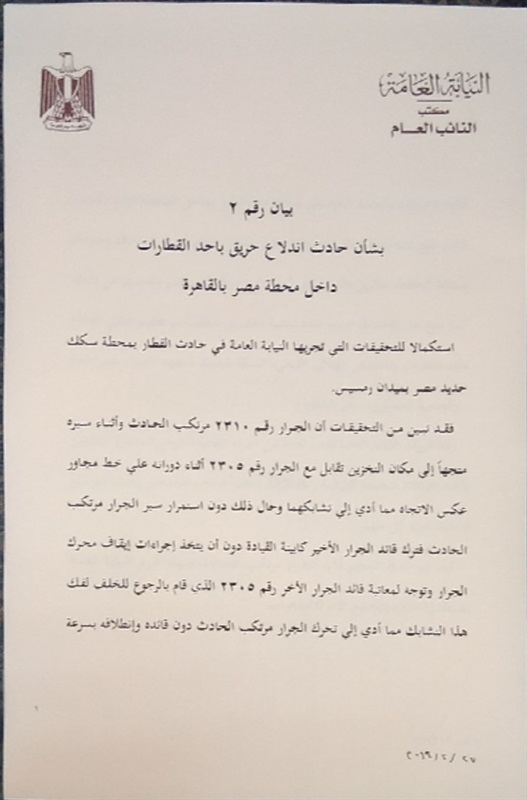 النيابة العامة
مكتب
النائب العام
بيان رقم ٢
بشأن حادث اندلاع حريق باحد القطارات
داخل محطة مصر بالقاهرة
استكمالا للتحقيقات التي تجريها النيابة العامة في حادث القطار بمحطة سكك
حديد مصر بميدان رمسيس.
فقد تبين من التحقيقات أن الجرار رقم ٢٣١٠ مرتكب الحادث وأثناء سيره
متجهاً إلى مكان التخزين تقابل مع الجرار رقم ٢٣٠٥ أثناء دورانه علي خط مجاور
عكس الاتجاه مما أدي إلي تشابكهما وحال ذلك دون استمرار سير الجرار مرتكب
الحادث فترك قائد الجرار الأخير كابينة القيادة دون أن يتخذ إجراءات إيقاف محرك
الجرار وتوجه لمعاتبة قائد الجرار الأخر رقم ٢٣٠٥ الذي قام بالرجوع للخلف لفك
هذا التشابك مما أدي إلي تحرك الجرار مرتكب الحادث دون قائده وإنطلاقه بسرعة
١
٢٠١٩/٢/٢٧